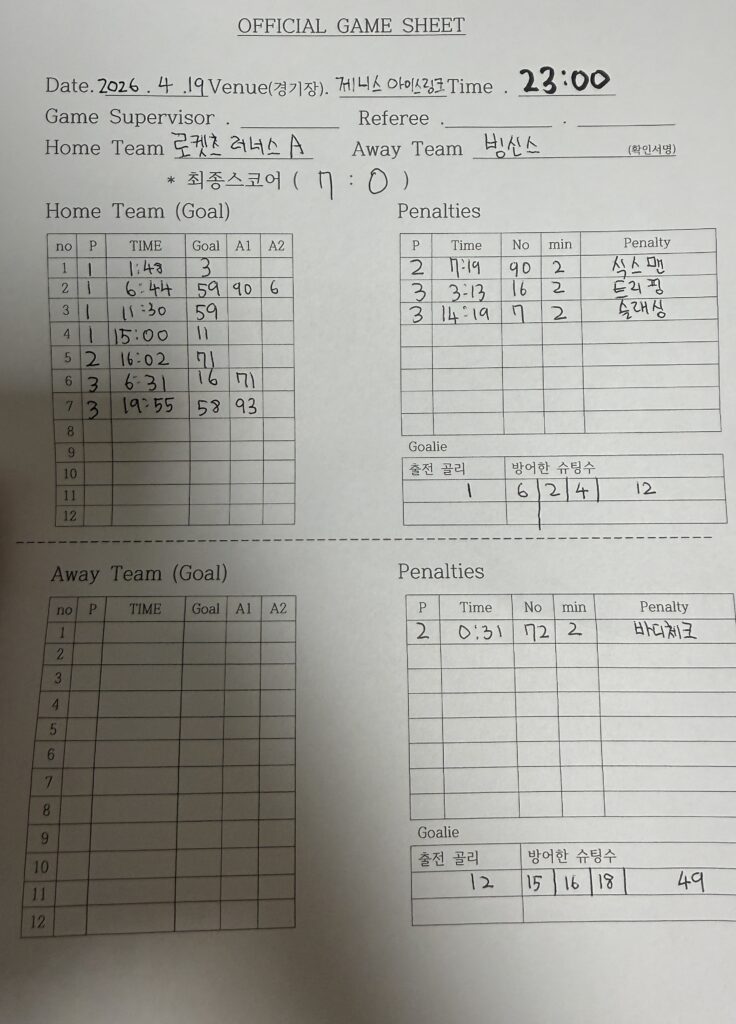 OFFICIAL GAME SHEET
Date. 2026 . 4 .19 Venue(경기장). 제니스 아이스링크 Time . 23:00
Game Supervisor . Referee . .
Home Team 로켓츠 러너스 A Away Team 빙신스 (확인서명)
* 최종스코어 ( 7 : 0 )
Home Team (Goal)
no P TIME Goal A1 A2
1 1 1:48 3
2 1 6:44 59 90 6
3 1 11:30 59
4 1 15:00 11
5 2 16:02 71
6 3 6:31 16 71
7 3 19:55 58 93
8
9
10
11
12
Penalties
P Time No min Penalty
2 7:19 90 2 식스맨
3 3:13 16 2 트리핑
3 14:19 7 2 슬래싱
Goalie
출전 골리 방어한 슈팅수
1 6 2 4 12
Away Team (Goal)
no P TIME Goal A1 A2
1
2
3
4
5
6
7
8
9
10
11
12
Penalties
P Time No min Penalty
2 0:31 72 2 바디체크
Goalie
출전 골리 방어한 슈팅수
12 15 16 18 49